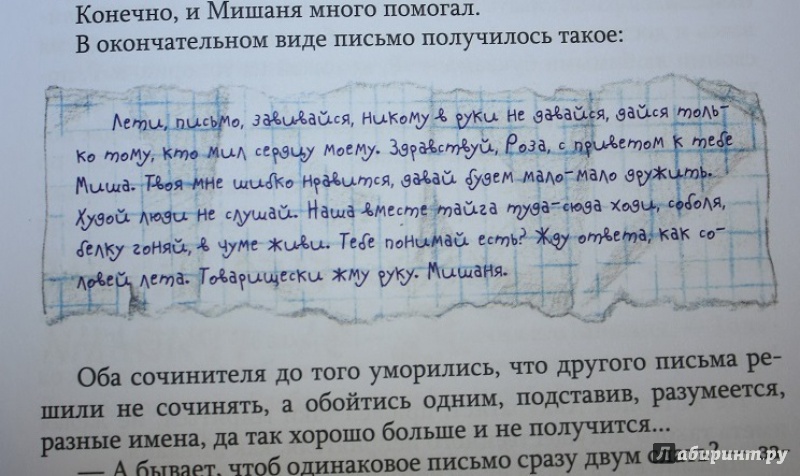 Конечно, и Мишаня много помогал.
В окончательном виде письмо получилось такое:
Лети, письмо, завивайся, никому в руки не давайся, дайся толь-
ко тому, кто мил сердцу моему. Здравствуй, Роза, с приветом к тебе
Миша. Твоя мне шибко нравится, давай будем мало-мало дружить.
Худой люди не слушай. Наша вместе тайга туда-сюда ходи, соболя,
белку гоняй, в чуме живи. Тебе понимай есть? Жду ответа, как со-
ловей лета. Товарищески жму руку. Мишаня.
Оба сочинителя до того уморились, что другого письма ре-
шили не сочинять, а обойтись одним, подставив, разумеется,
разные имена, да так хорошо больше и не получится...
— А бывает, чтоб одинаковое письмо сразу двум
Лабиринт.ру